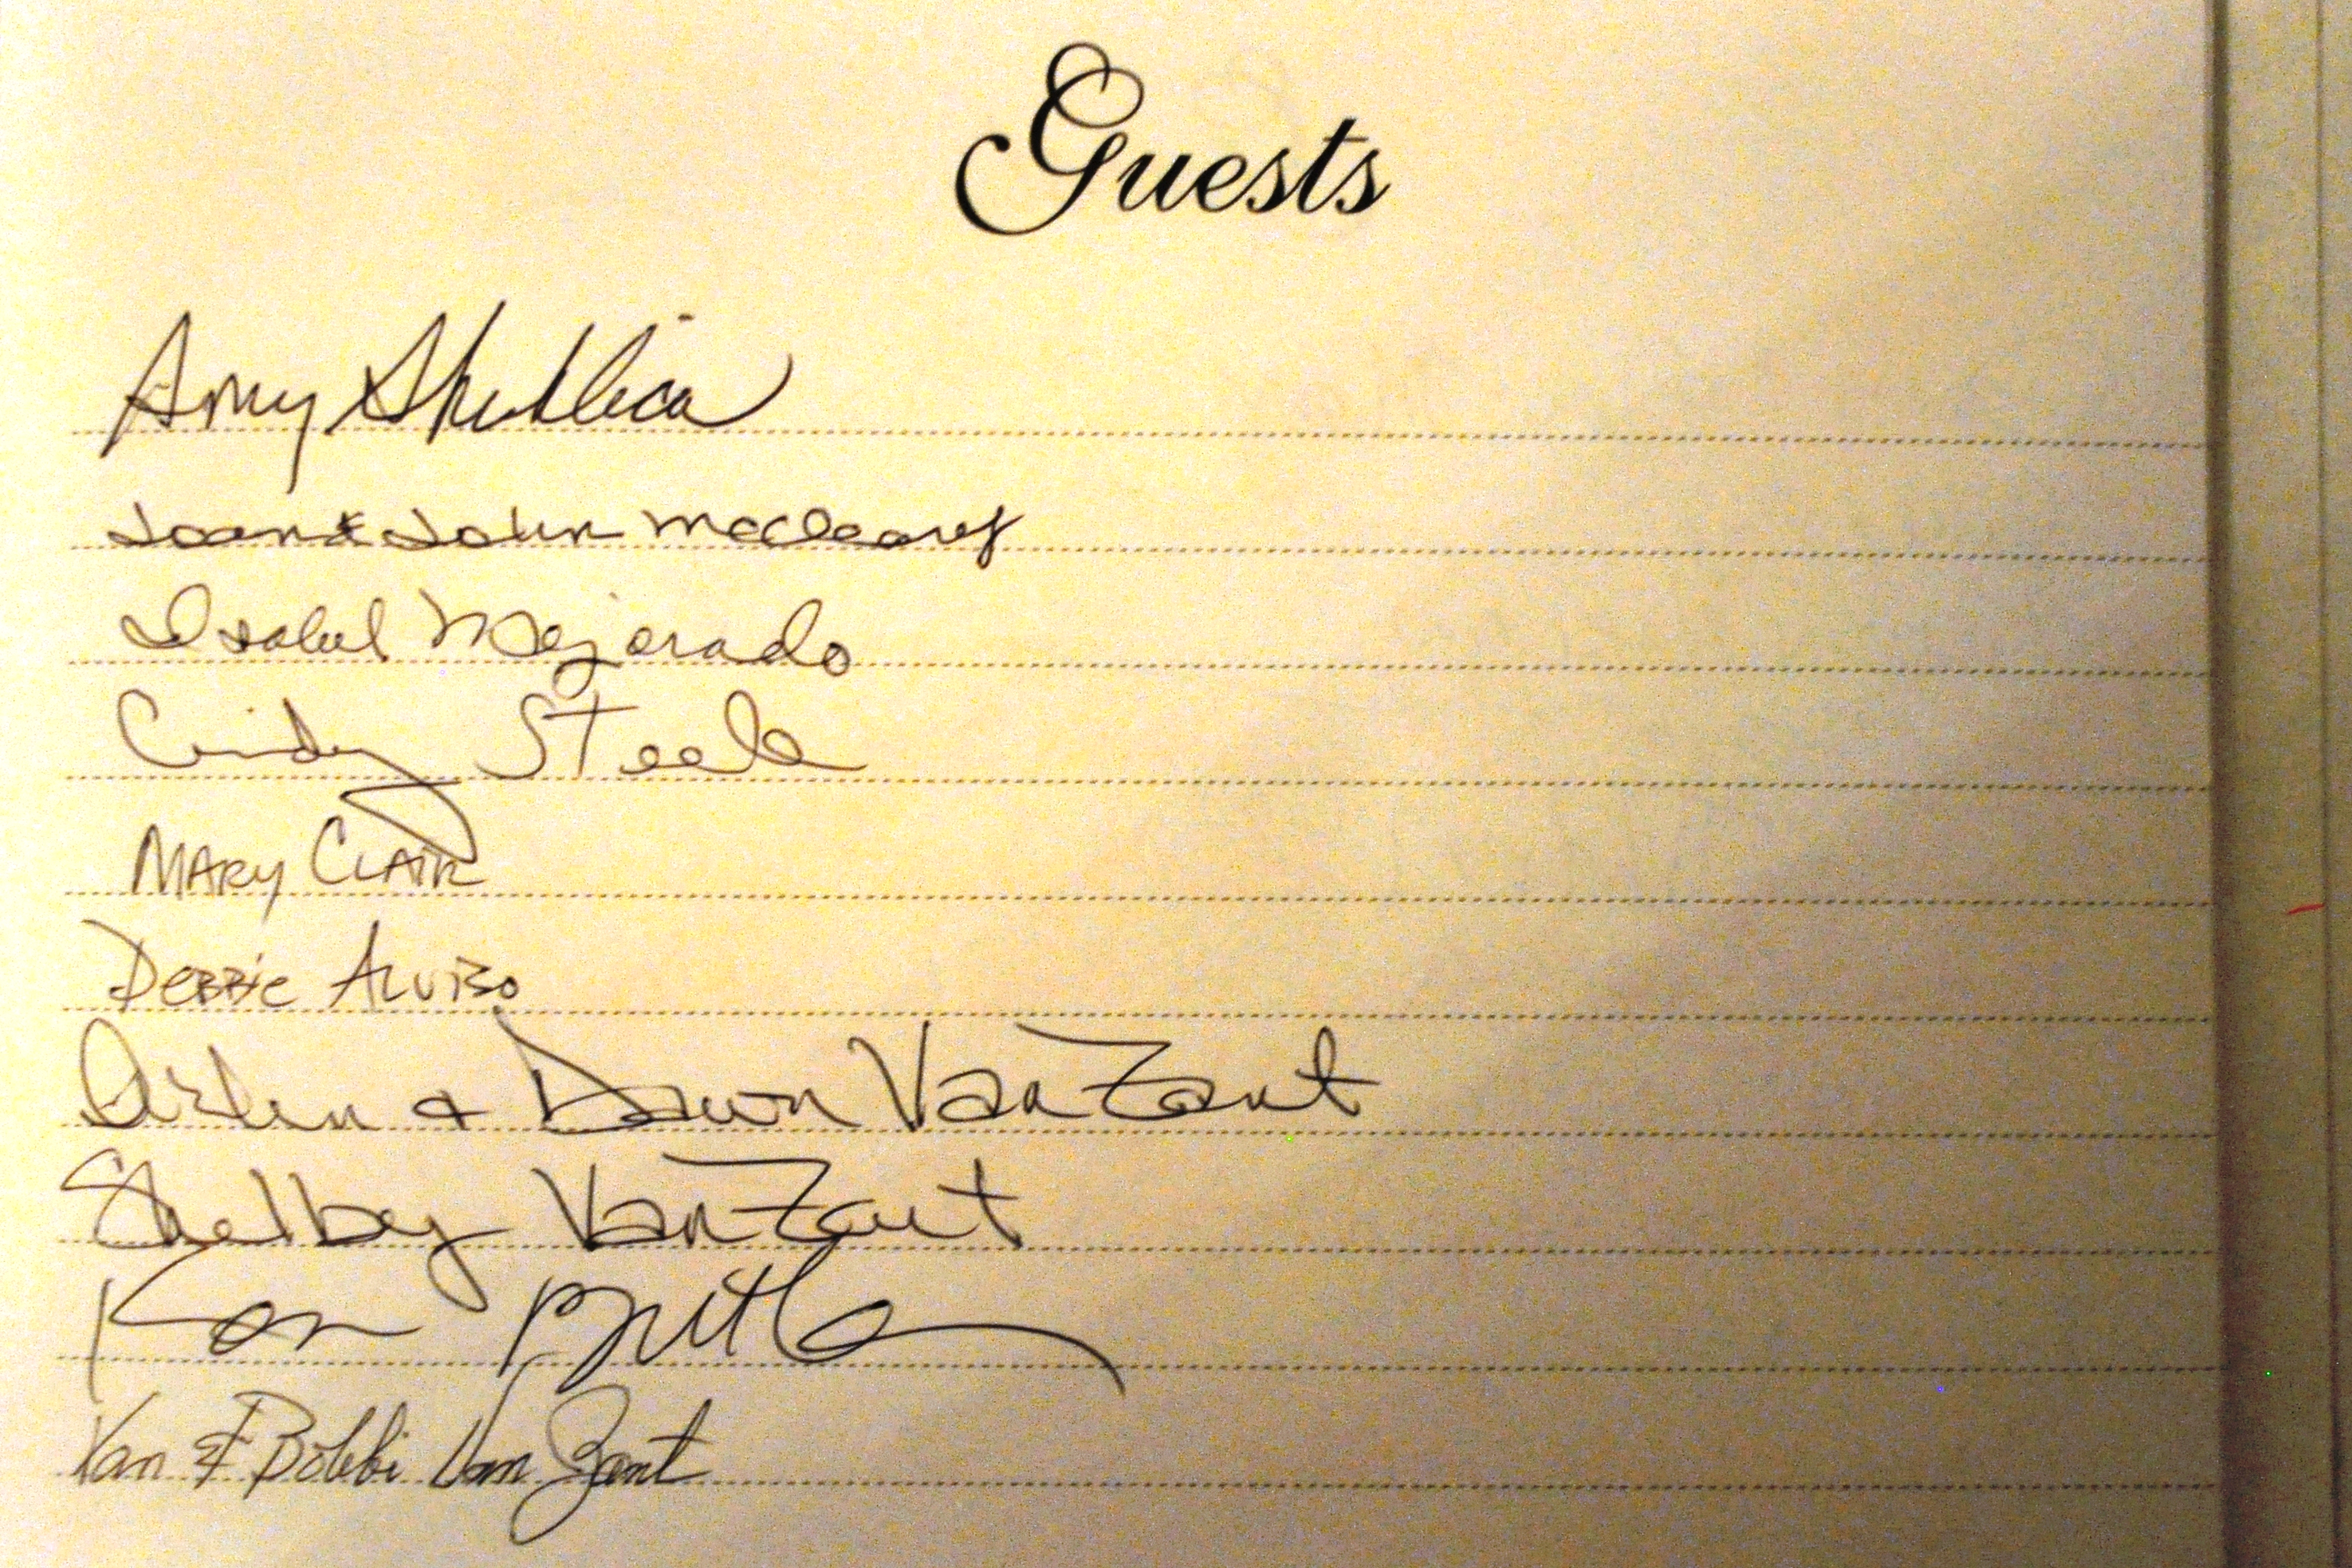 Guests
Amy
Joan & John McCleary
Isabel Mejorado
Cindy Steele
MARY CLAIR
DEBBIE ALVISO
Arlen & Dawn VanZant
Shelby VanZant
Van & Bobbi Van Zant